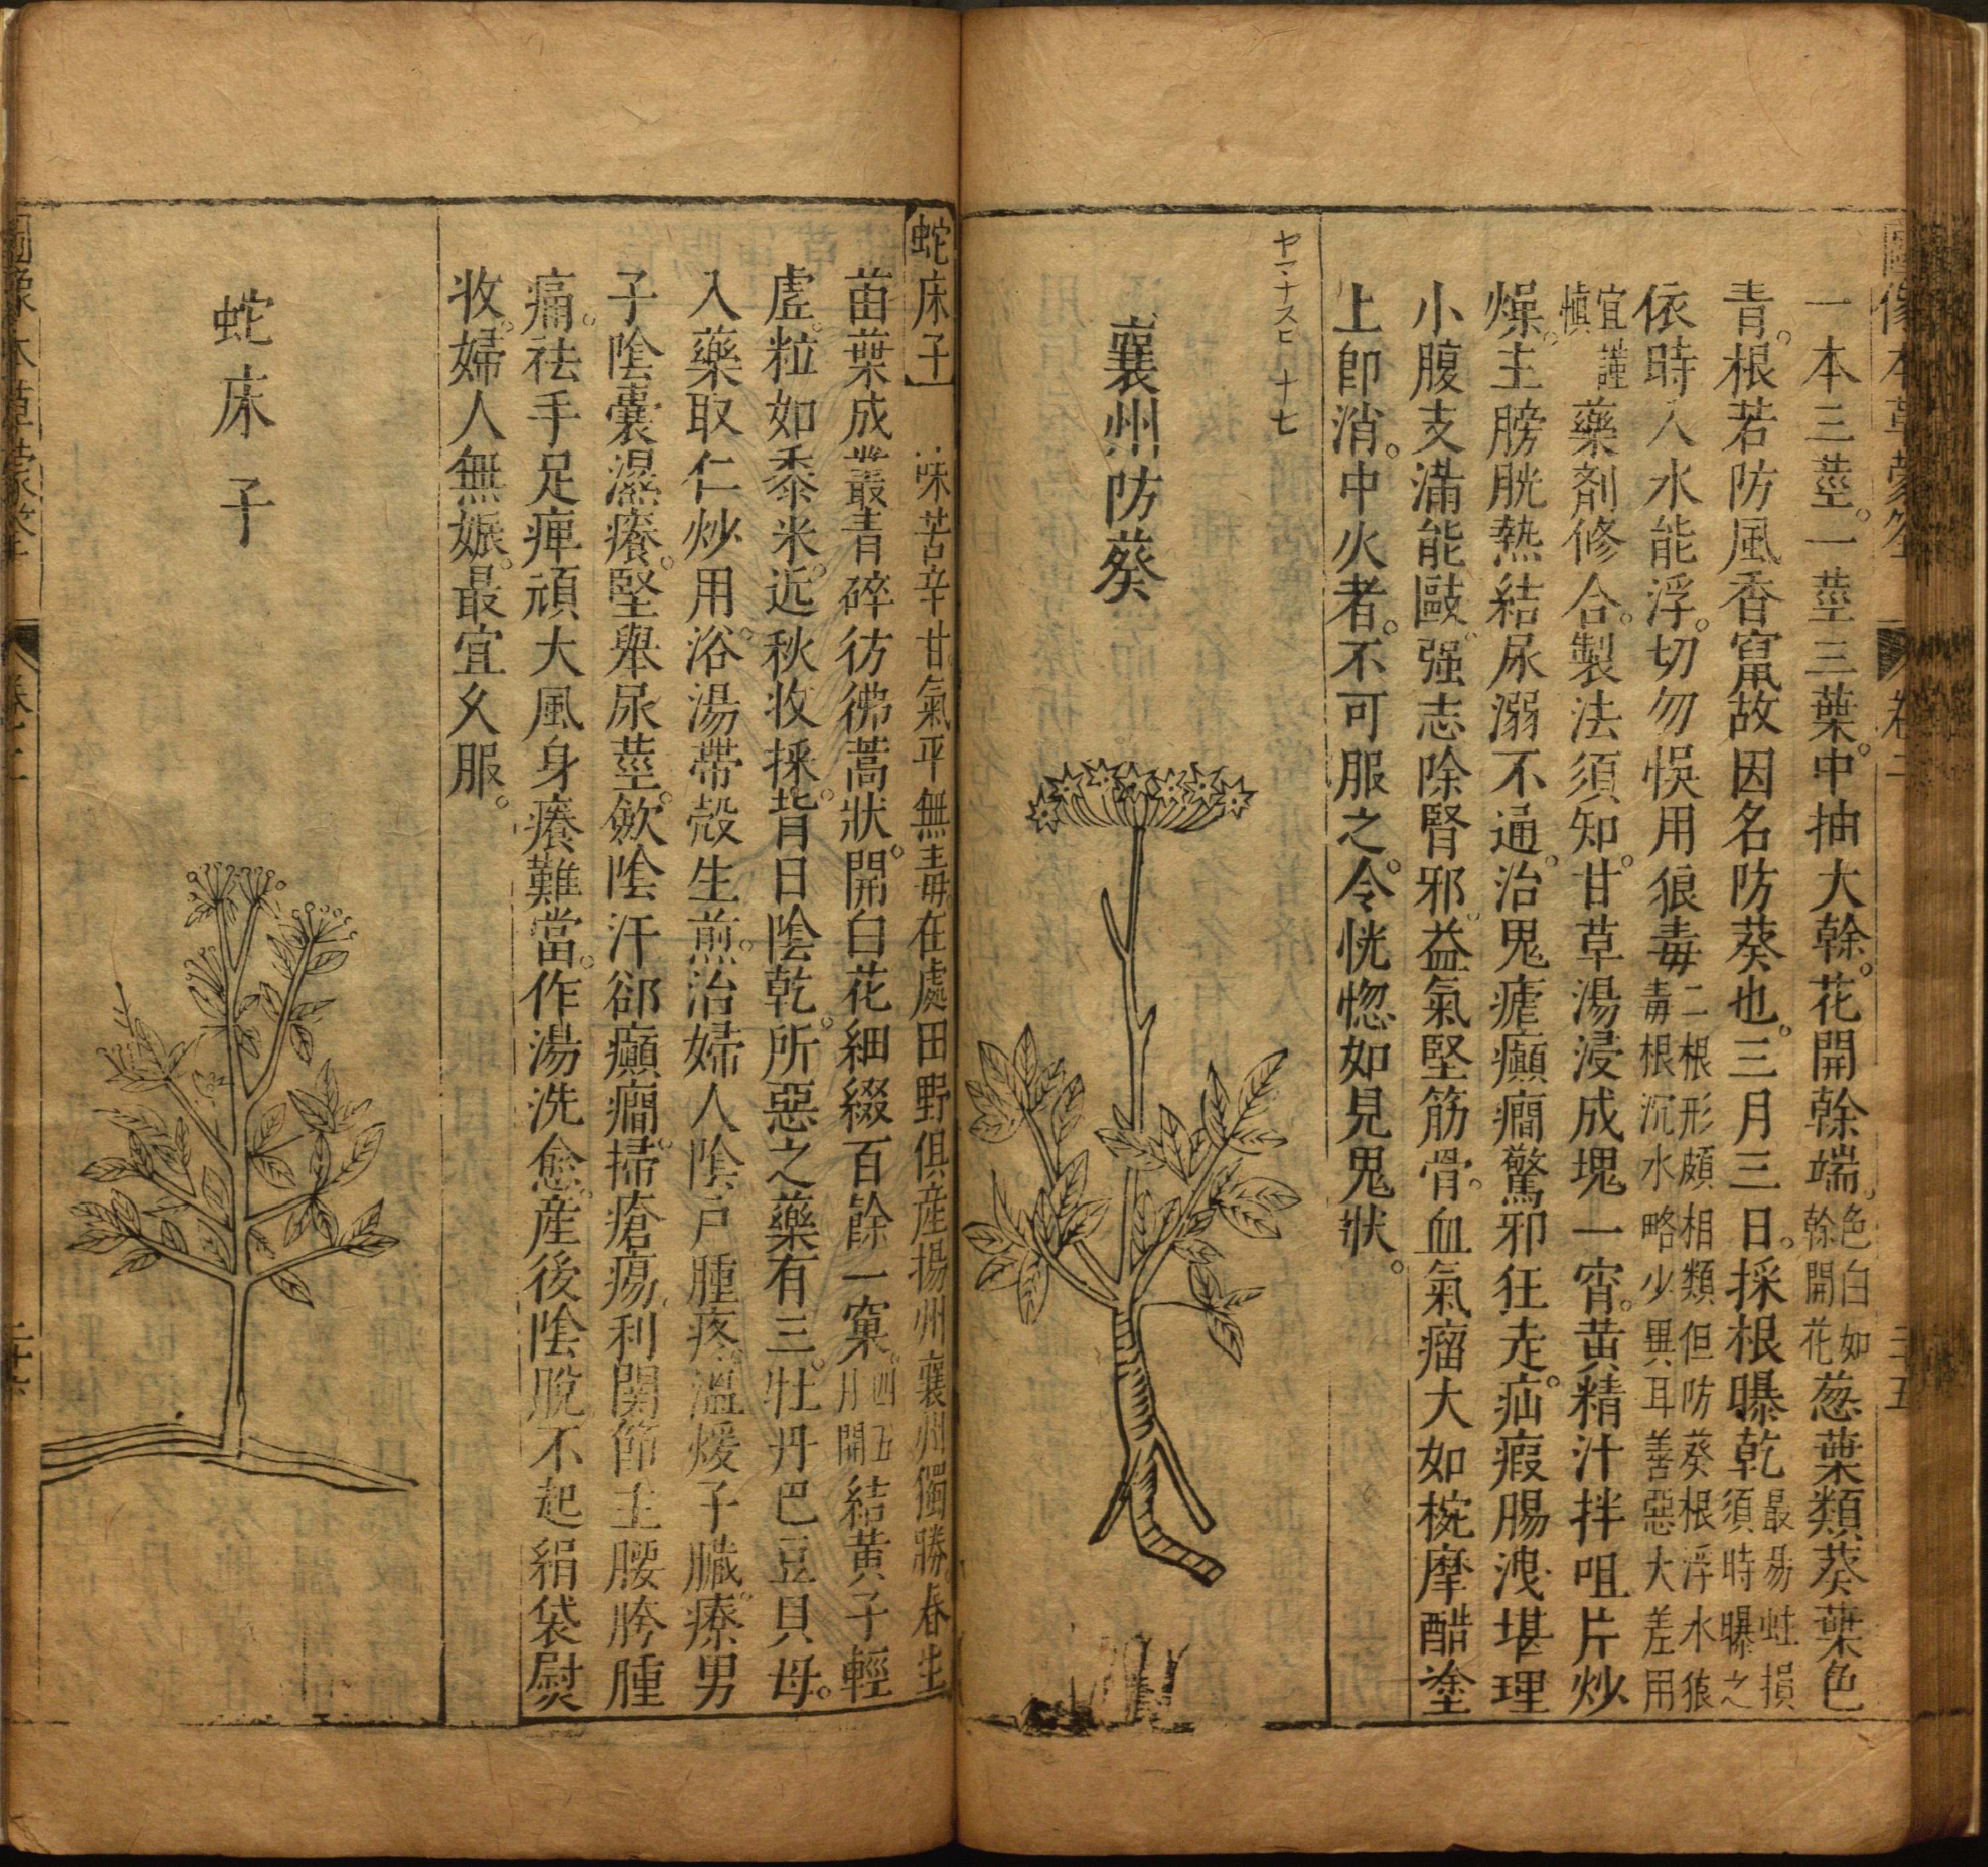 圖像本草蒙筌 卷二
一本三莖。一莖三葉。中抽大榦。花開榦端。色白如葱葉類葵葉色
榦開花
青。根若防風香竄故因名防葵也。三月三日。採根曝乾最易蛀損
須時曝之
依時人水能浮。切勿悞用狼毒二根形頗相類但防葵根浮水狼
毒根沉水略少異耳善惡大差用
宜謹
愼藥劑修合。製法須知。甘草湯浸成塊一宵。黄精汁拌咀片炒
燥。主膀胱熱結尿溺不通。治鬼瘧癲癇驚邪狂走。疝瘕腸洩堪理
小腹支滿能敺。强志除腎邪。益氣堅筋骨。血氣瘤大如椀摩醋塗
上卽消。中火者。不可服之。令恍惚如見鬼狀。
ヤマナスヒ 十七
襄州防葵
蛇床子 味苦辛甘。氣平無毒在處田野俱産揚州襄州獨勝。春生
苗葉成叢青碎彷彿蒿狀。開白花細綴百餘一窠。四五
月開結黄子輕
虛。粒如黍米。近秋收採。背日陰乾。所惡之藥有三。牡丹巴豆貝母。
入藥取仁炒用。浴湯帶殼生煎。治婦人陰戸腫疼。溫煖子臟。療男
子陰囊濕癢。堅舉尿莖。斂陰汗卻癲癇。掃瘡瘍。利関節主腰胯腫
痛。祛手足痺頑大風身癢難當。作湯洗愈。産後陰脫不起絹袋熨
收。婦人無娠。最宜久服。
蛇床子
圖像本草蒙筌 卷二